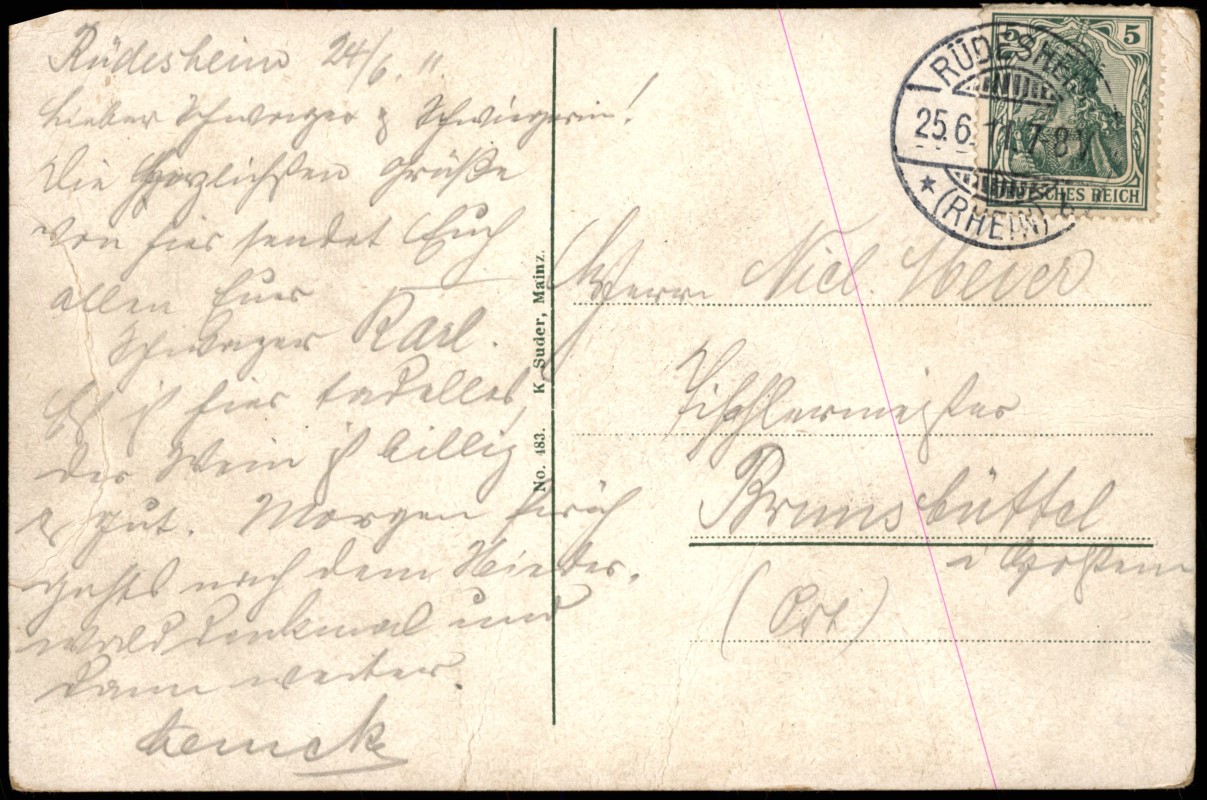 Rüdesheim 24/6. 11.
Lieber Schwager & Schwägerin!
Die herzlichsten Grüße
von hier sendet Euch
allen Euer
Schwager Karl.
Es ist hier tadellos,
der Wein ist billig
& gut. Morgen früh
gehts nach dem Nieder-
wald Denkmal und
dann weiter.
No. 483. K. Suder, Mainz.
RÜDESHEIM
25.6.11.7-8V
* (RHEIN)
5 5
DEUTSCHES REICH
Herrn Nicl. Meier
Tischlermeister
Brunsbüttel
i Holstein
(Ort)